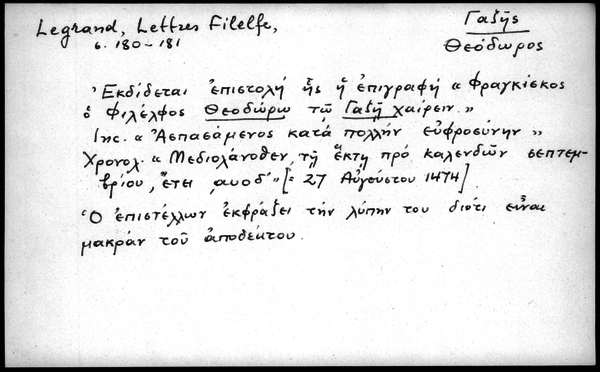 Legrand, Lettres Filelfe,
σ. 180-181
Γαζῆς
Θεόδωρος
Ἐκδίδεται ἐπιστολή ἧς ἡ ἐπιγραφή « Φραγκίσκος
ὁ Φιλέλφος Θεοδώρω τῶ Γαζῆ χαίρειν. »
Inc. « Ἀσπασάμενος κατά πολλήν εὐφροσύνην »
Χρονολ. « Μεδιολάνοθεν, τῆ ἕκτη πρό καλενδῶν σεπτεμ-
βρίου, ἔτει ͵αυοδ´ » [= 27 Αὐγούστου 1474]
Ὁ ἐπιστέλλων ἐκφράζει τήν λύπην του διότι εἶναι
μακράν τοῦ ἀποδέκτου.